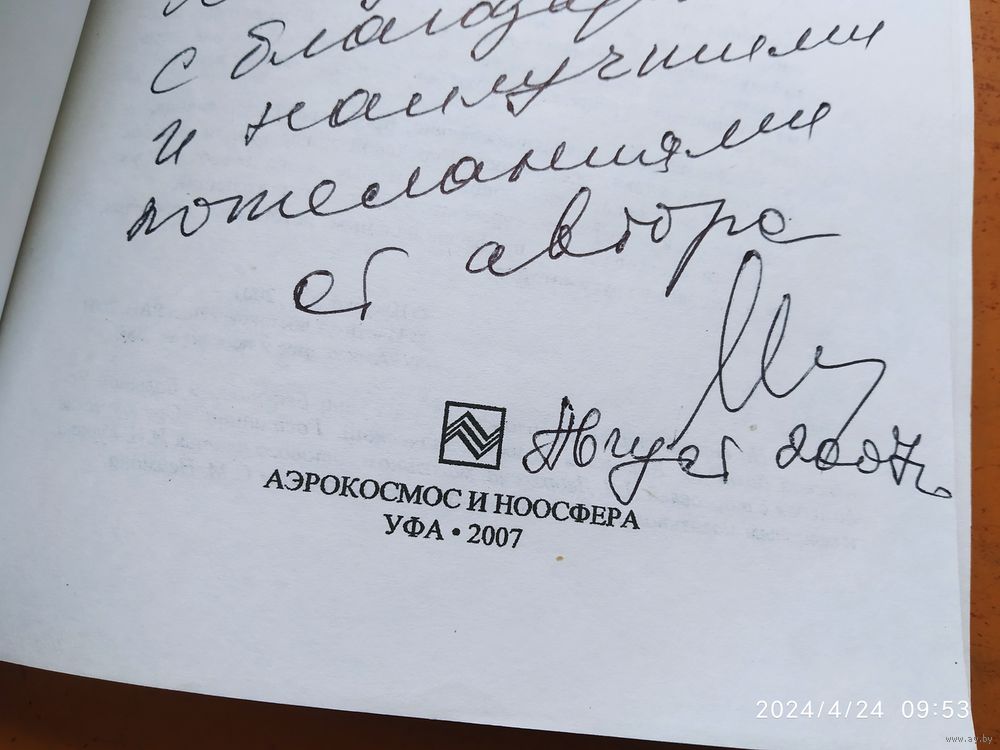 с благодар
и наилучшими
пожеланиями
от автора
Август 2007г.
АЭРОКОСМОС И НООСФЕРА
УФА • 2007
2024/4/24 09:53
www.ay.by